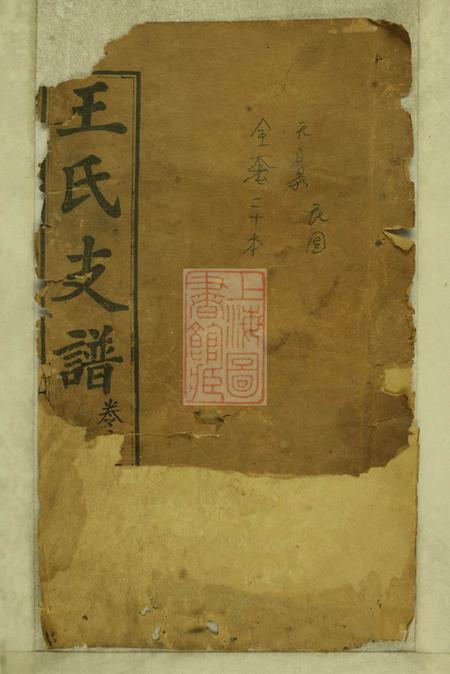 无目录 民国
全套二十本
上海圖
書館藏
王氏支譜
卷